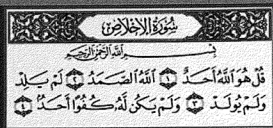 سُورَةُ الْإِخْلَاصِ
بِسْمِ اللَّهِ الرَّحْمَٰنِ الرَّحِيمِ
قُلْ هُوَ اللَّهُ أَحَدٌ ١ اللَّهُ الصَّمَدُ ٢ لَمْ يَلِدْ
وَلَمْ يُولَدْ ٣ وَلَمْ يَكُن لَّهُۥ كُفُوًا أَحَدٌ ٤